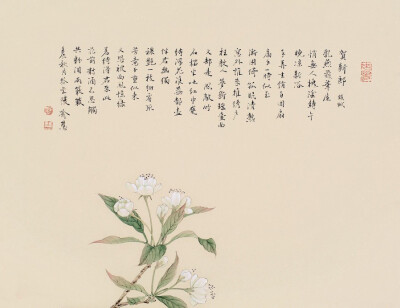 賀新郎 蘇軾
乳燕飛華屋
悄無人桐陰轉午
晚涼新浴
手弄生綃白團扇
扇手一時似玉
漸困倚孤眠清熟
簾外誰來推繡戶
枉教人夢斷瑤臺曲
又却是風敲竹
石榴半吐紅巾蹙
待浮花浪蕊都盡
伴君幽獨
穠艷一枝細看取
芳意千重似束
又恐被西風驚綠
若待得君來向此
花前對酒不忍觸
共粉淚兩簌簌
秋月於金陵